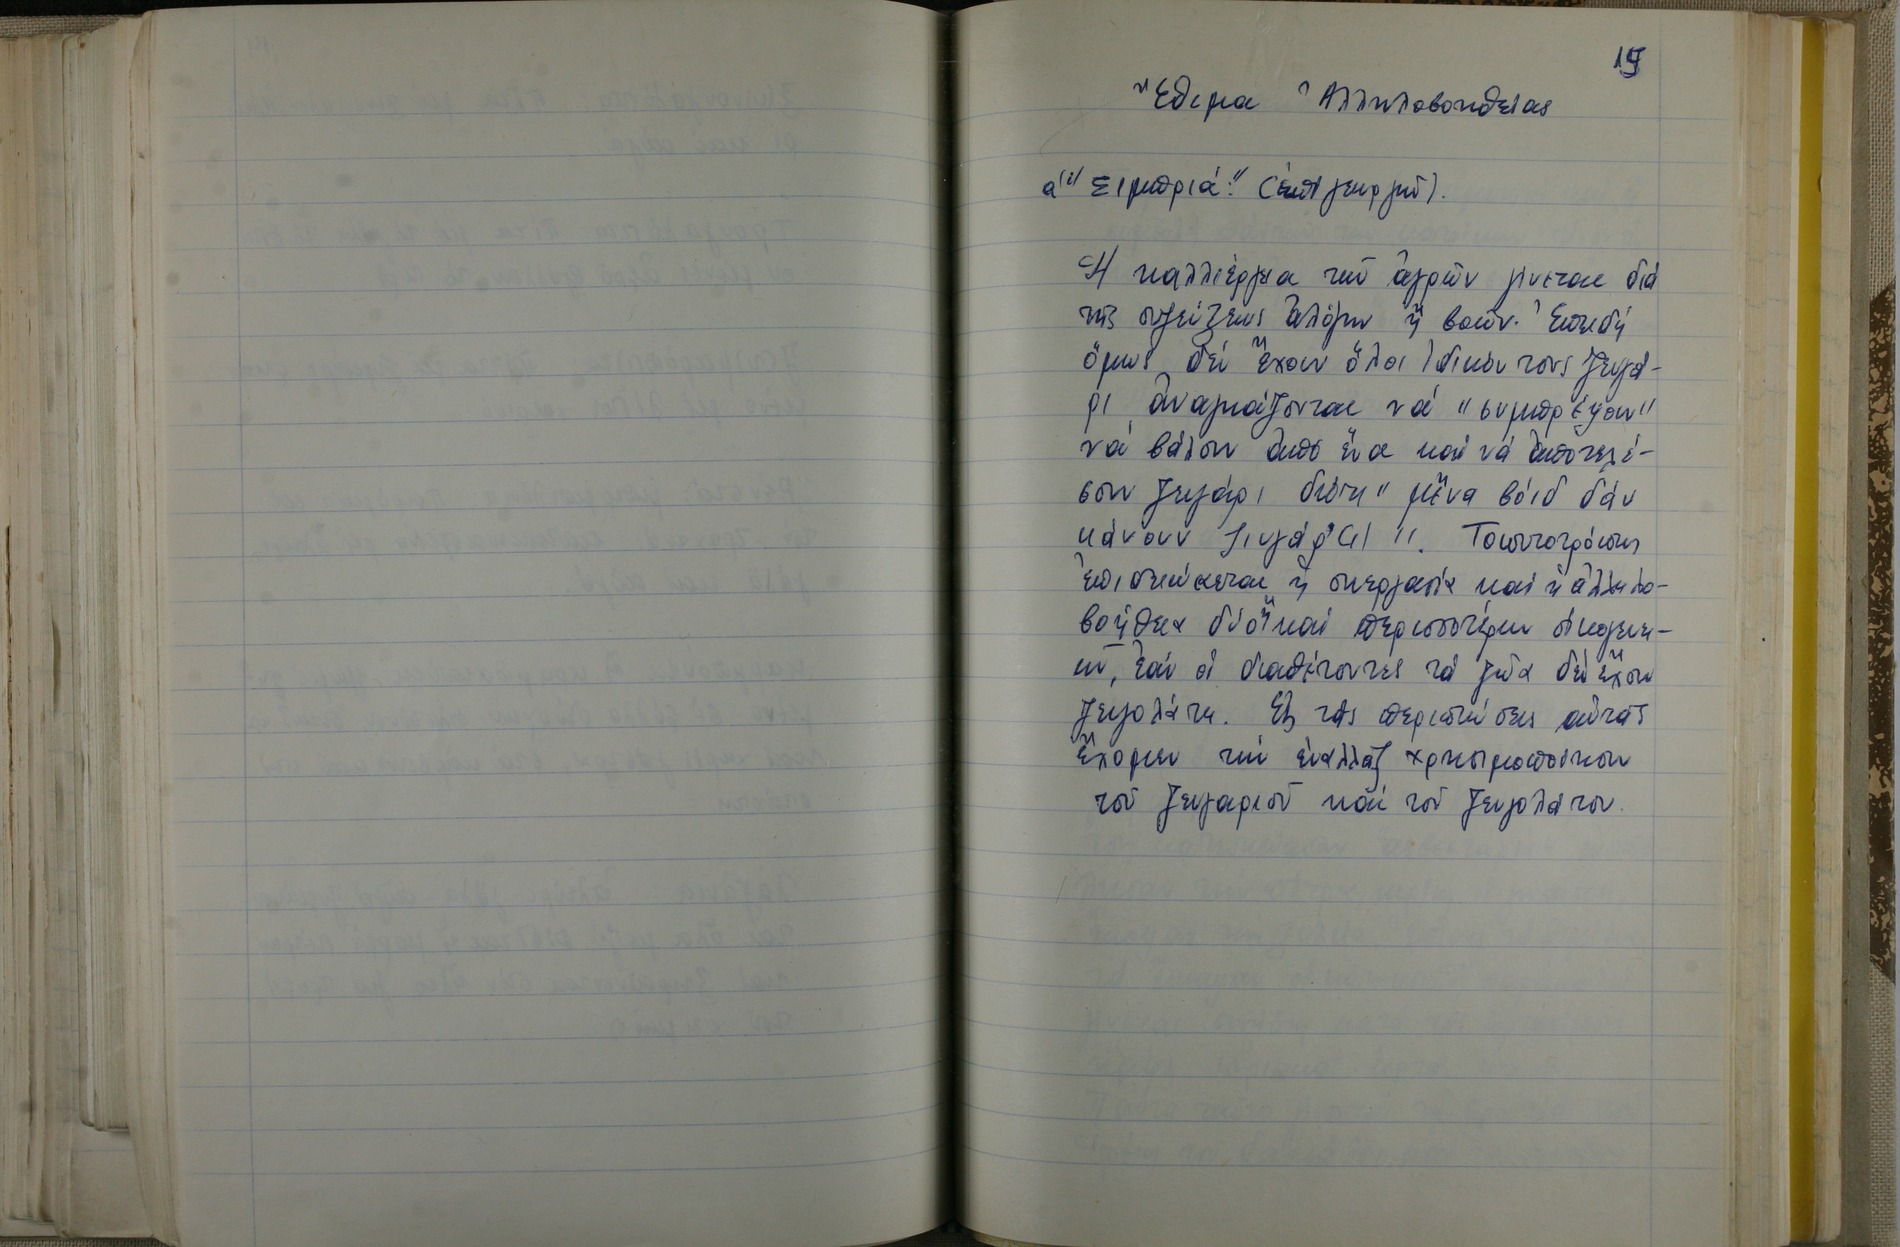 19
Ἔθιμα Ἀλληλοβοηθείας
α' "Σιμπριά:" (ἐπί γεωργῶν).
Ἡ καλλιέργεια τῶν ἀγρῶν γίνεται διά
τῆς συζεύξεως ἀλόγων ἤ βοῶν. Ἐπειδή
ὅμως δέν ἔχουν ὅλοι ἰδικόν τους ζευγά-
ρι ἀναγκάζονται νά "συμπρέψουν"
νά βάλουν ἀπό ἕνα καί νά ἀποτελέ-
σουν ζευγάρι διότι "μἕνα βόιδ δέν
κάνουν ζιυγάρ'(ι)". Τοιουτοτρόπως
ἐπιδιώκεται ἡ συνεργασία καί ἡ ἀλληλο-
βοήθεια δύο ἤ καί περισσοτέρων οἰκογενει-
ῶν, ἐάν οἱ διαθέτοντες τά ζῶα δέν ἔχουν
ζευγολάτη. Εἰς τάς περιπτώσεις αὐτάς
ἔχομεν τήν ἐναλλάξ χρησιμοποίησιν
τοῦ ζευγαριοῦ καί τοῦ ζευγολάτου.